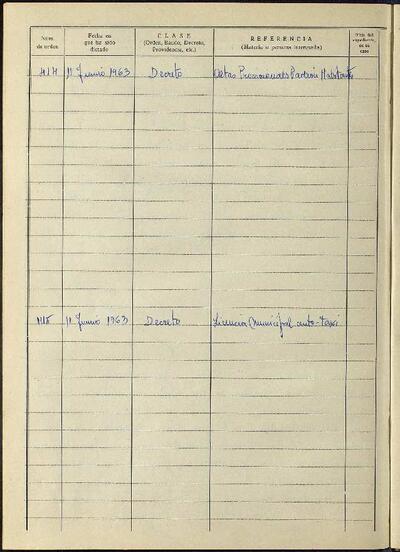 Núm. de orden
Fecha en que ha sido dictado
CLASE
(Orden, Bando, Decreto, Providencia, etc.)
REFERENCIA
(Materia o persona interesada)
11 Junio 1963 Decreto Altas Padrón Habitantes
11 Junio 1963 Decreto Licencia Municipal auto-taxi